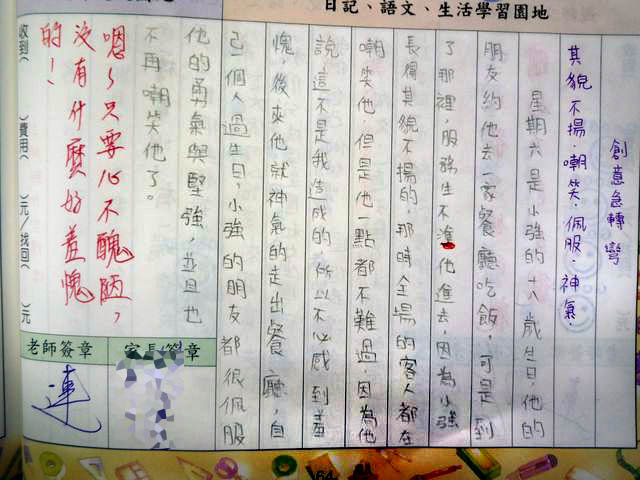 日記、語文、生活學習園地
創意急轉彎
其貌不揚.嘲笑.佩服.神氣.
星期六是小強的十八歲生日,他的
朋友約他去一家餐廳吃飯,可是到
了那裡,服務生不准他進去,因為小強
長得其貌不揚的,那時全場的客人都在
嘲笑他,但是他一點都不難過,因為他
說這不是我造成的,所以不必感到羞
愧,後來他就神氣的走出餐廳,自
己一個人過生日,小強的朋友都很佩服
他的勇氣與堅強,並且也
不再嘲笑他了。
嗯~只要心不醜陋,
沒有什麼好羞愧
的!
收到( )費用( )元/找回( )元
老師簽章
家長簽章
連
64